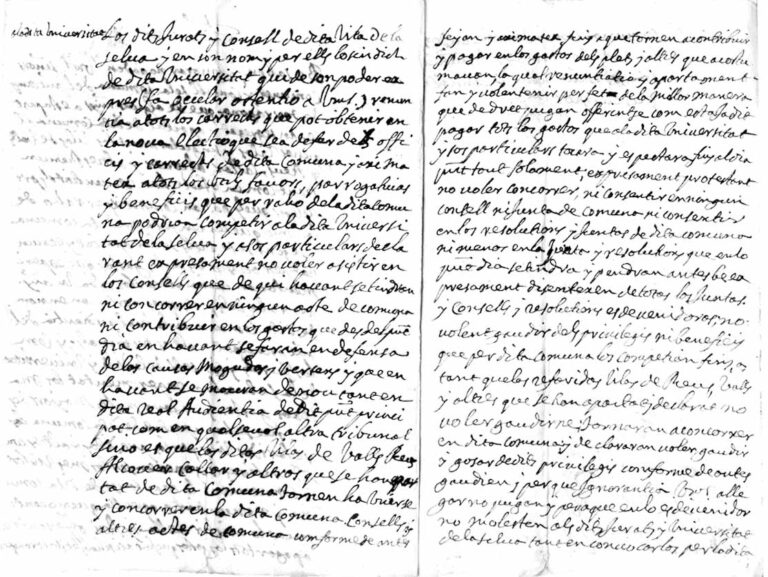 a la dita Universitat
Los dits Jurats y Consell de dita Vila de la
selva y en un nom y per ells lo sindich
de dita Universitat qui de son poder ex
pressa renuncia
cia a tots los correchs que pot obtenir en
la nova Electio que sea de fer dels offi
cis y carrechs de dita Comuna y axi ma
teix a tots los favors, parrogativas
y beneficis que per raho de la dita comu
na podrian competir a la dita Universi
tat de la selva y a sos particulars decla
rant expresament no voler asistir en
los Consells que de qui havant se tindran
ni concorrer en ningun acte de comuna
ni contribuir en los gastos que des del pnt
dia en havant se faran en defensa
de las causas mogudas y versens y que en
havant se mouran de nou tant en
dita Real Audientia del pnt princi
pat com en qualsevol altra tribunal
sino es que las ditas Vilas de Valls Reus
Alcover y altres que se han apar
tat de dita Comuna tornen ha
y concorrer en la dita Comuna Consells y
altres actes de comuna conforme de antes
fejan y axi mateix fins a que tornen a contribuir
y pagar en los gastos dels plets y altres que acostu
mavan la qual renuntiatio y apartament
fan y volen tenir per feta de la millor manera
que de dret pugan offerintse com es
pagar tots los gastos que a la dita Universitat
y sos particulars tocara y espectara fins al dia
pnt tant solament, expresament protestant
no voler concorrer, ni consentir en ningun
consell ni Junta de Comuna ni consentir
en las resolutions y Juntas de dita comuna
ni menos en la Junta y resolutions que en lo
pnt dia se tindra y pendran antes be ex
presament disentexen de totas las Juntas
y Consells y resolutions esdevenidoras, no
volent gaudir dels privilegis ni beneficis
que per dita Comuna los competian fins
tant que las referidas Vilas de Reus, Valls
y altres que se han apartat y declarat no
voler gaudirne tornaran a concorrer
en dita comuna y declararan voler gaudir
y gosar de dits privilegis conforme de antes
gaudian y perque ignorantia alle
gar no pugan y peraque en lo esdevenidor
no molesten als dits Jurats y Universitat
de la selva tant en com per la dita